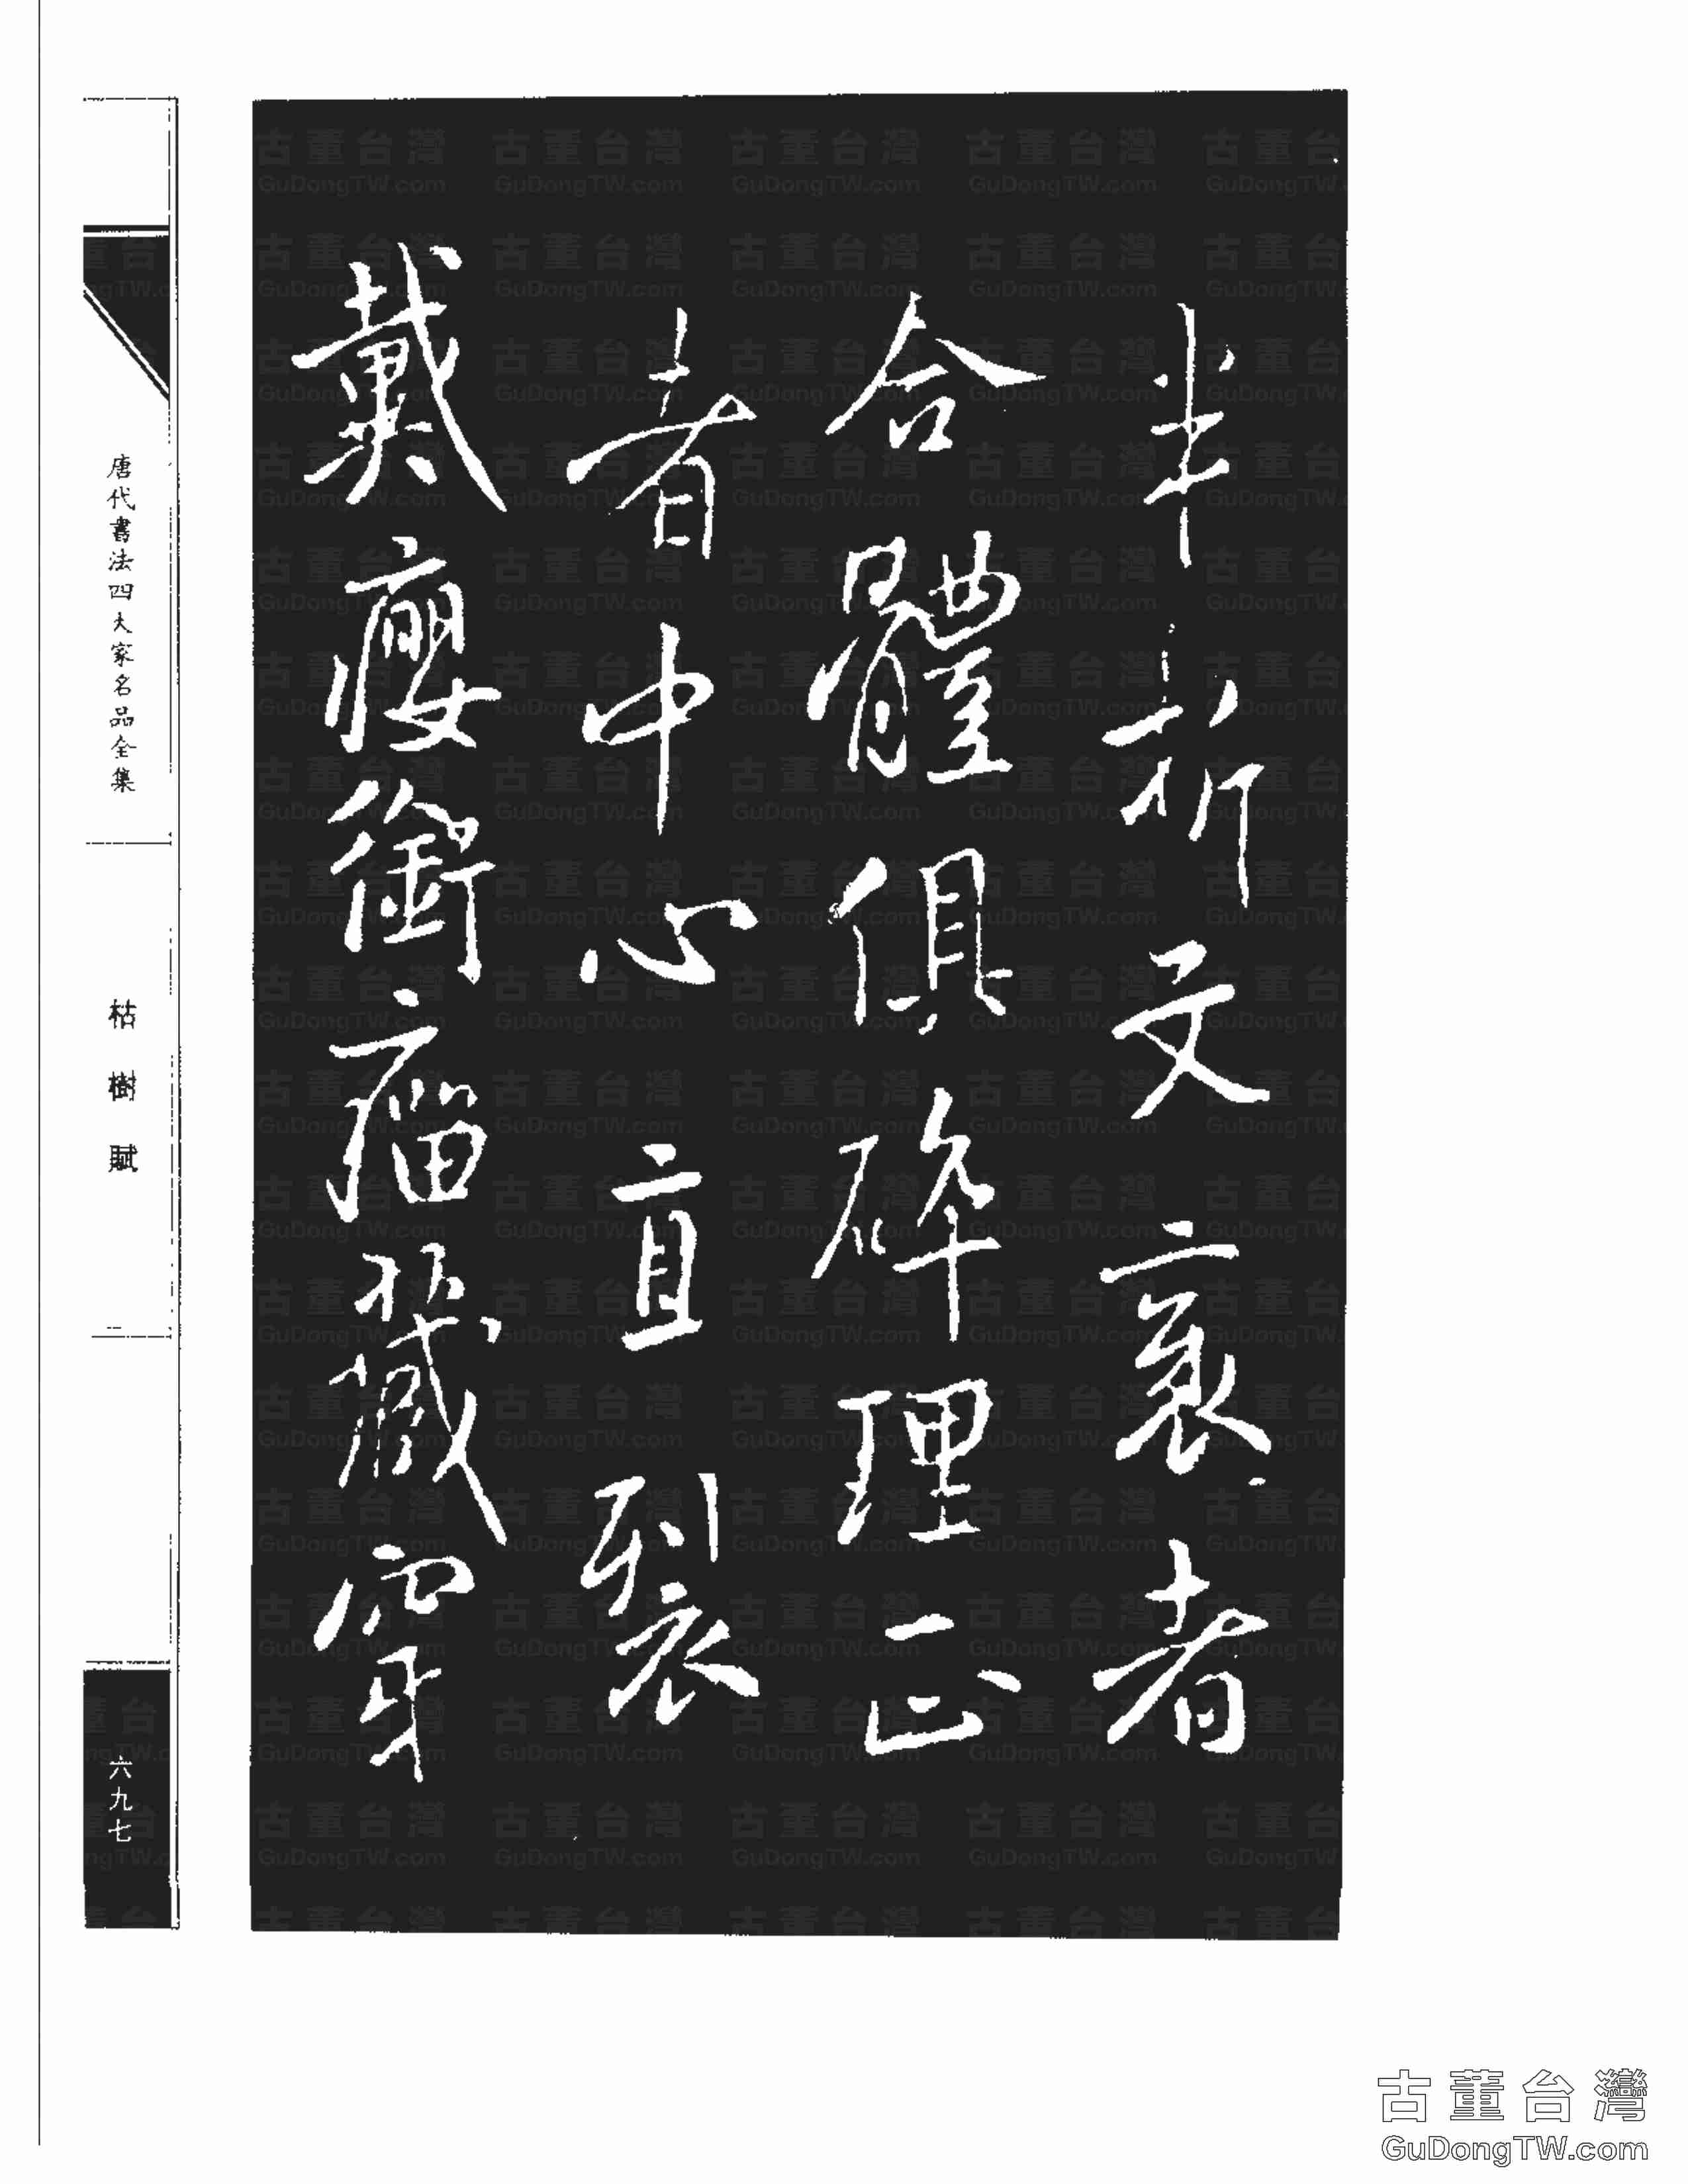 半折文衺者
合體俱碎理正
者中心直裂
戴癭銜瘤藏穿
唐代書法四大家名品全集
枯樹賦
六九七
古董台灣
GuDongTW.com